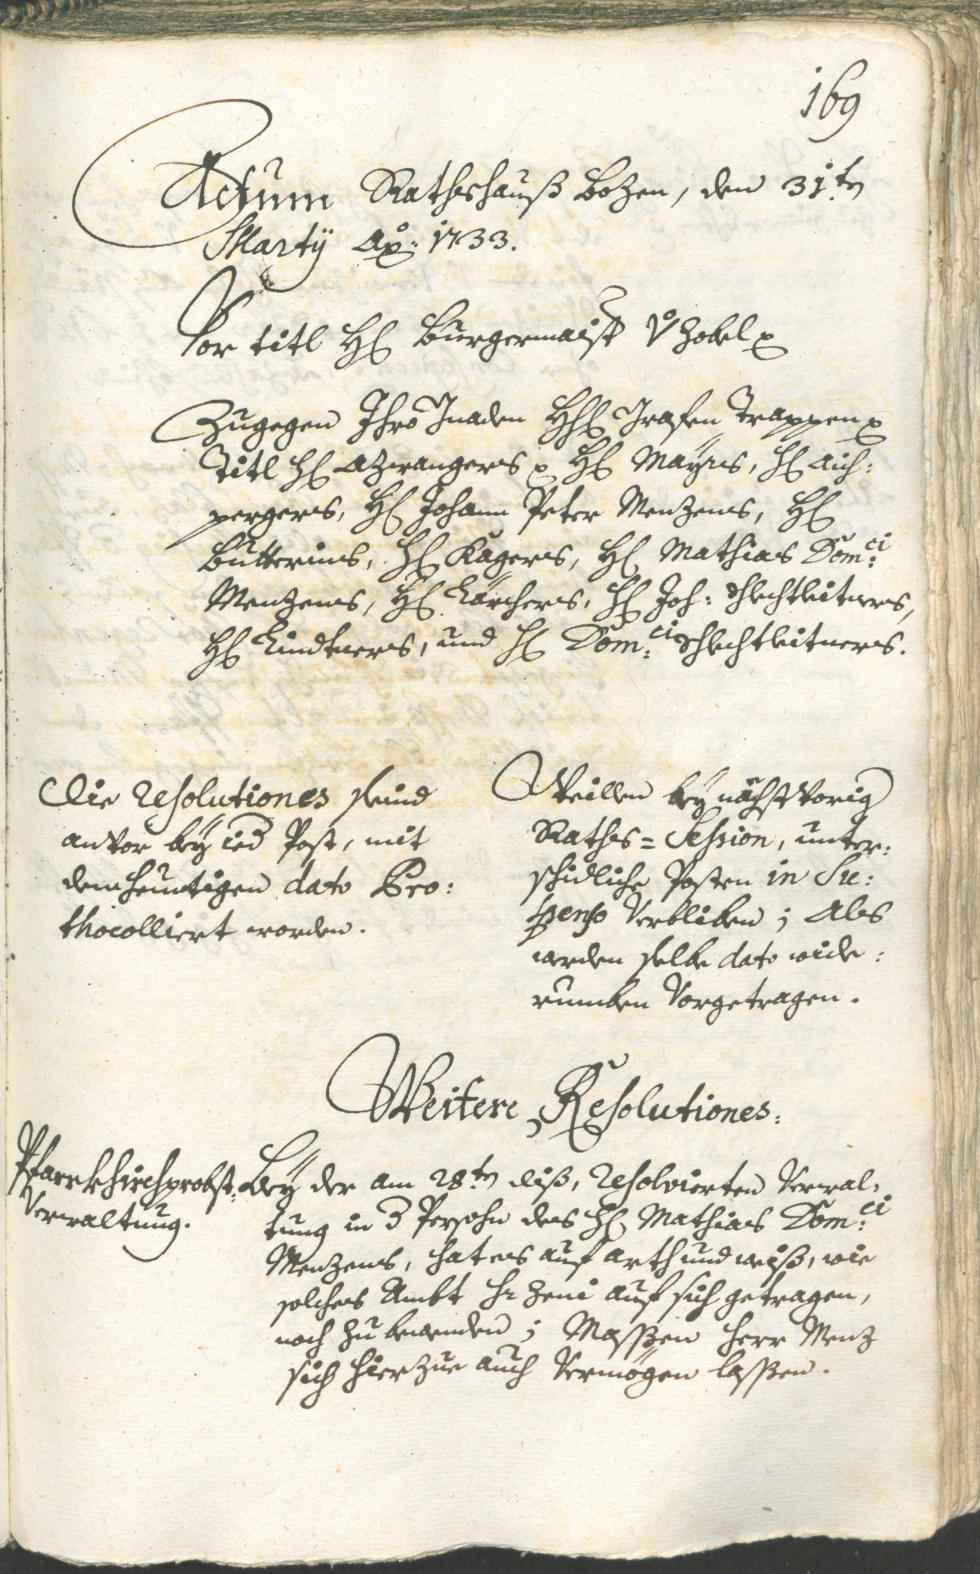 169
Actum Rathshauß Bozen, den 31.ten
Martÿ Ao: 1733.
Vor titl H: Burgermaister v Zobel
Zugegen Ihro Gnaden HH: Grafen Trappen
Titl H: Azwangers H: Mayrs, H: Aich:
pergers, H: Johann Peter Menzens, H:
Butterins, H: Kagers, H: Mathias Dom:ci
Menzens, H: Karchers, H: Joh: Schlechtleitners,
H: Lindtners, und H: Dom:ci Schlechtleitners.
Die Resolutiones seind
anvor beÿ ied Post, mit
dem heuntigen dato Pro:
thocolliert worden.
Weillen beÿ nächst vorig
Raths=Session, unter:
schidliche Posten in Su:
spenso verbliben; Als
werden selbe dato wide:
rumben vorgetragen.
Weitere Resolutiones:
Pfarrkhirchprobst:
Verwaltung.
Beÿ der am 28.ten diß, resolvierten Verwal:
tung in d Persohn des H: Mathias Dom:ci
Menzens, hat es auf arth und weiß, wie
solches Ambt Hr Zeni auf sich getragen,
noch zu bewenden; Massen Herr Menz
sich hierzue auch vermögen lassen.